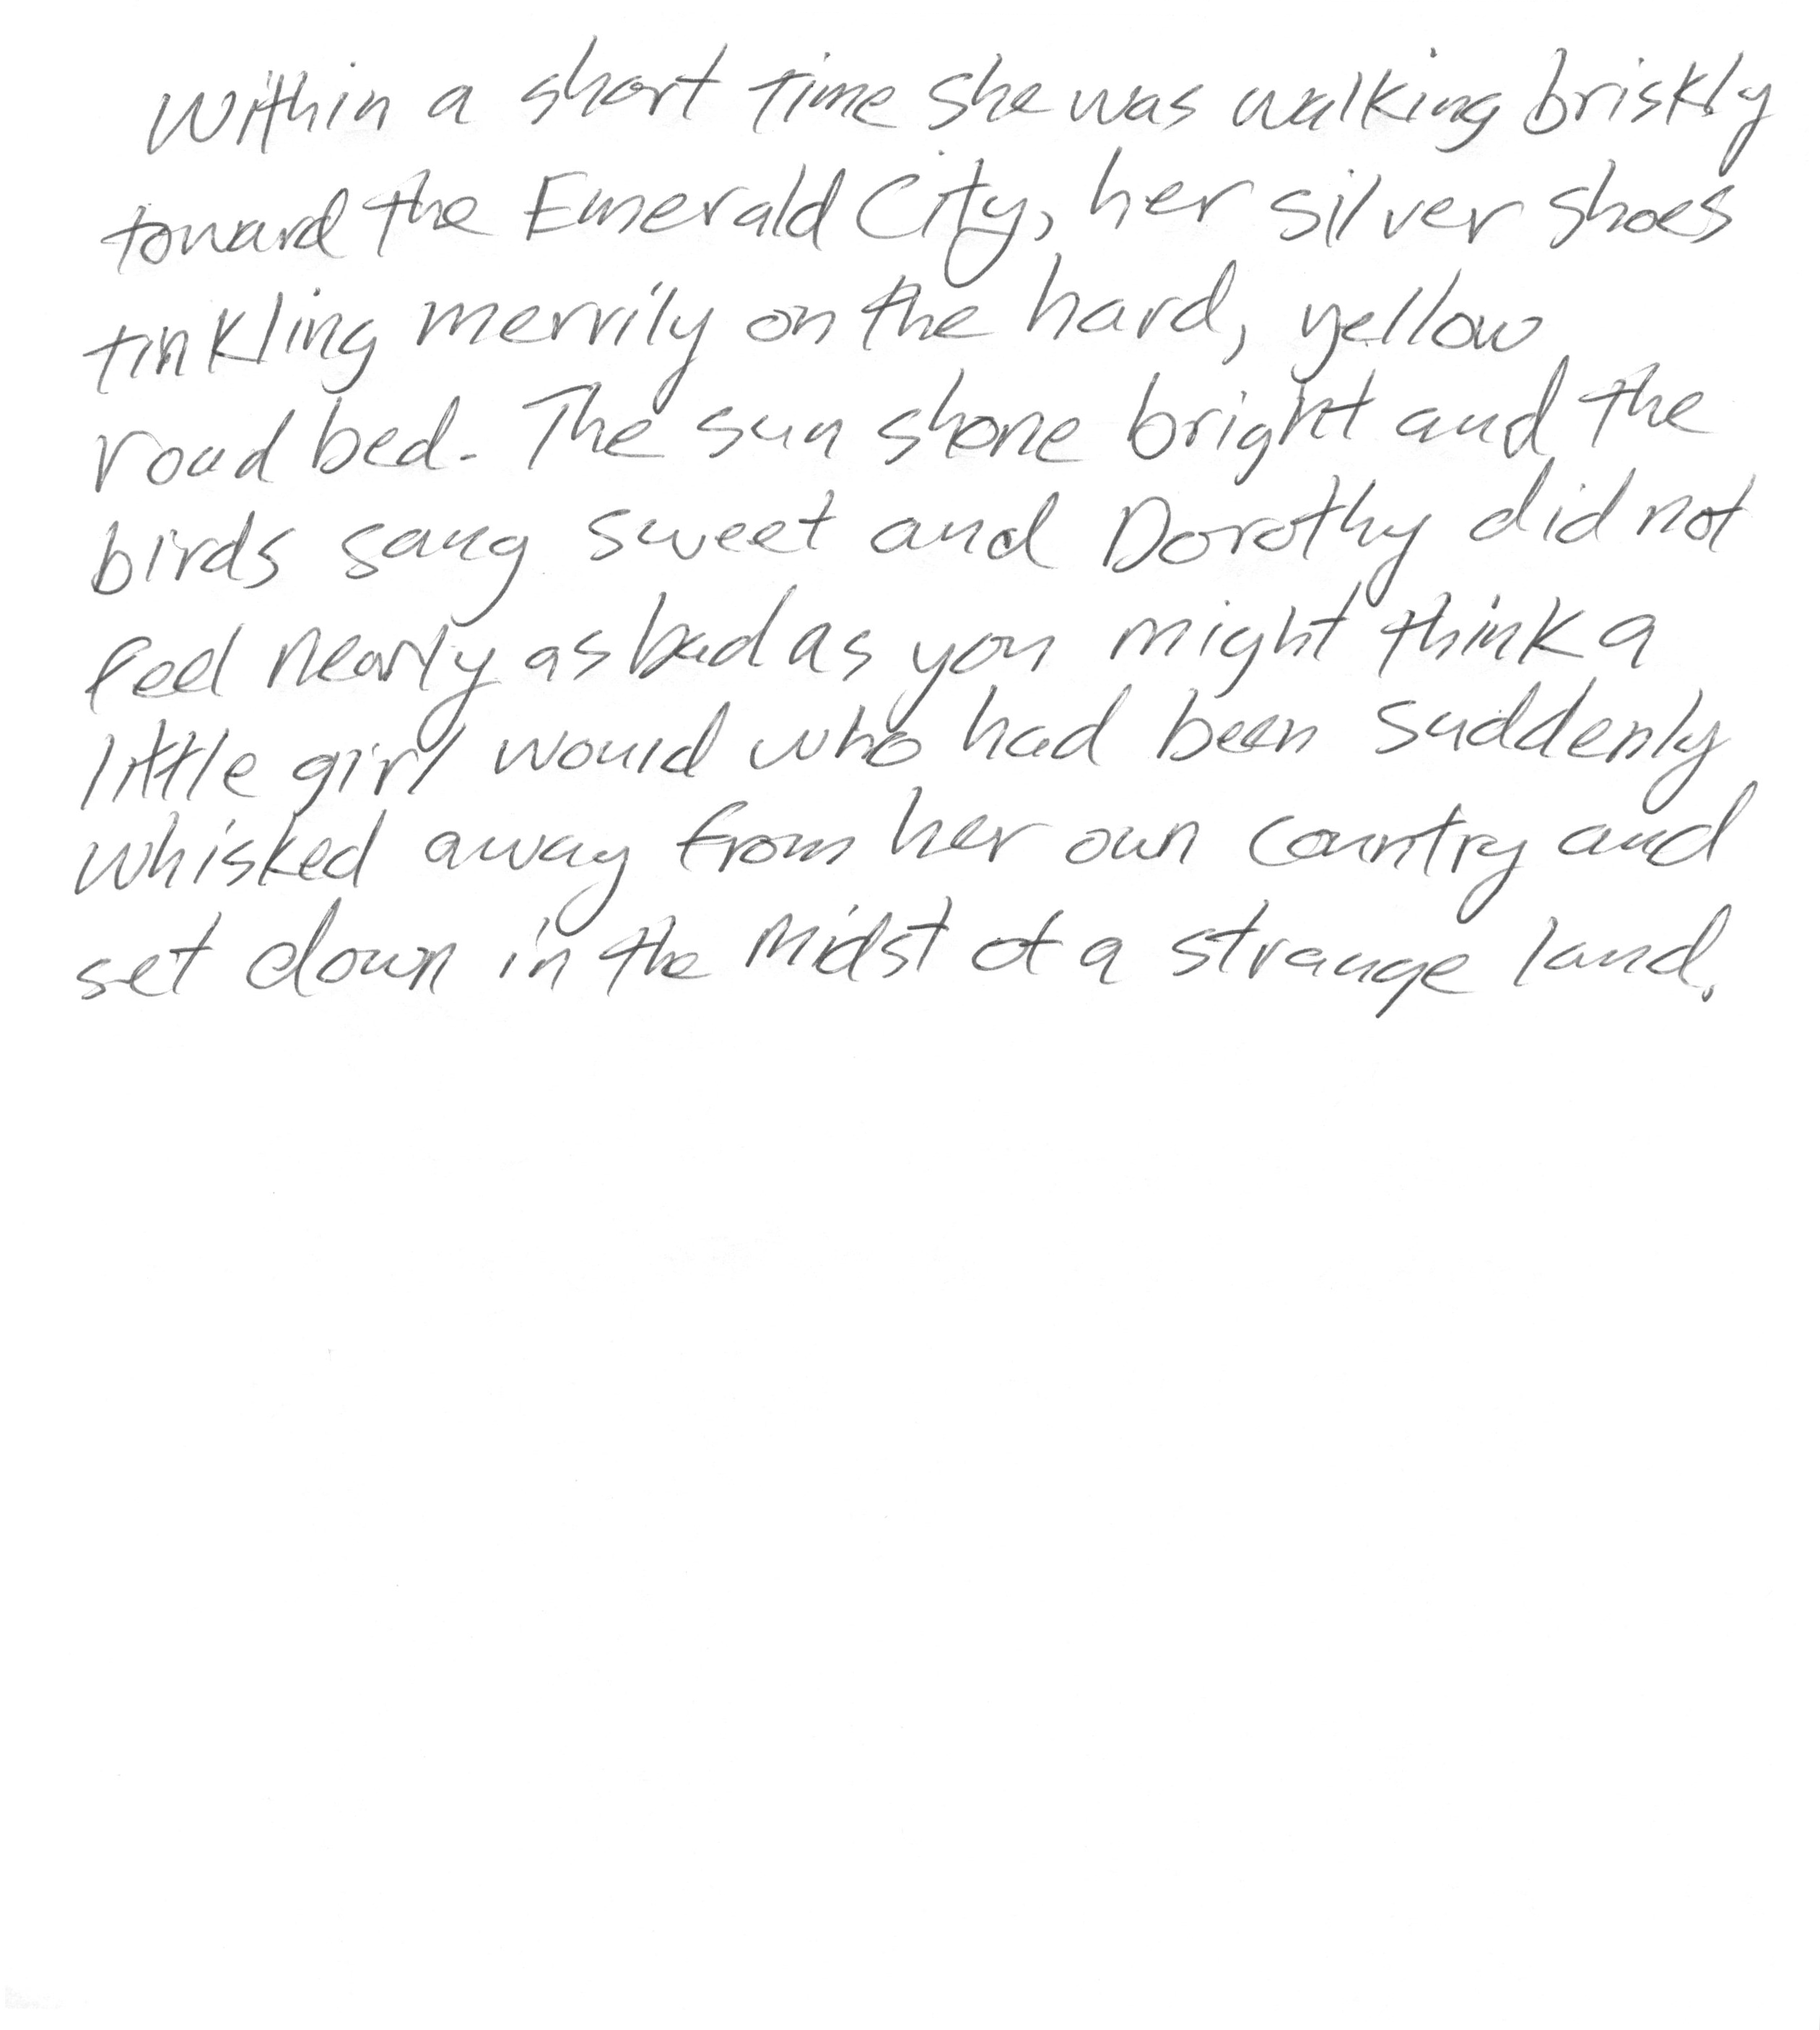 Within a short time she was walking briskly
toward the Emerald City, her silver shoes
tinkling merrily on the hard, yellow
road bed. The sun shone bright and the
birds sang sweet and Dorothy did not
feel nearly as bad as you might think a
little girl would who had been suddenly
whisked away from her own country and
set down in the midst of a strange land.